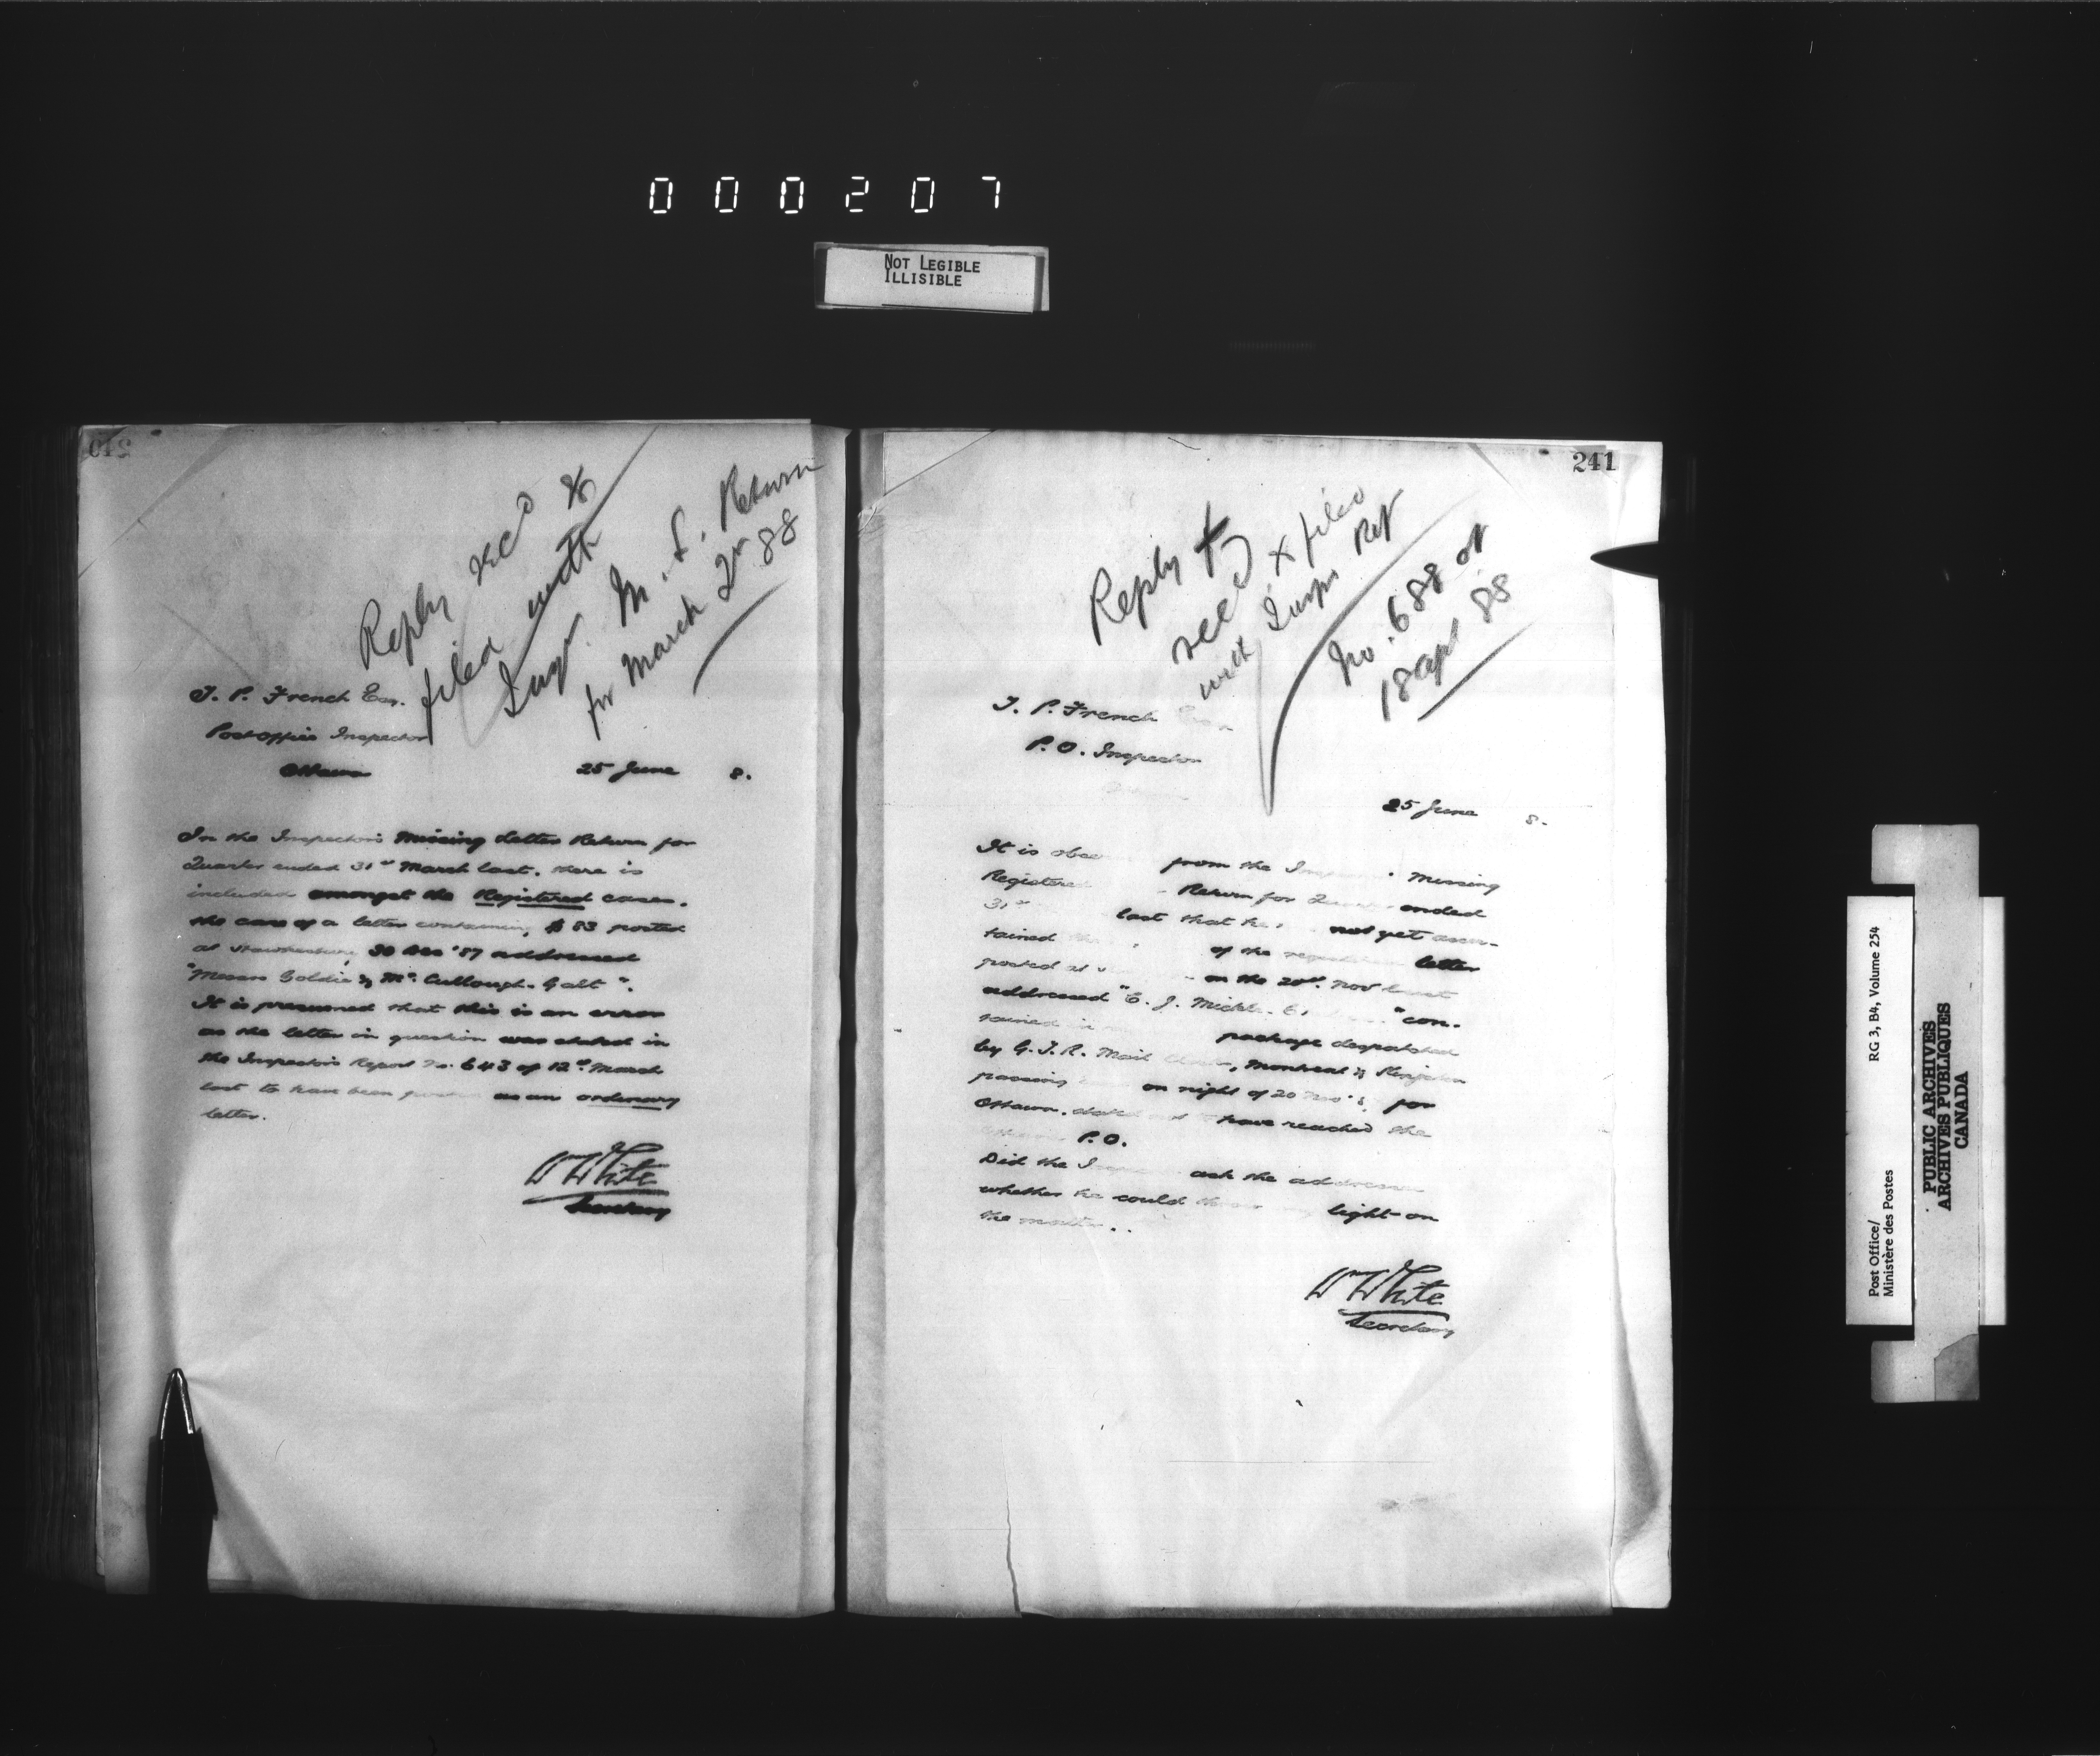 000207
NOT LEGIBLE
ILLISIBLE
240
Reply rec'd &
filed with
Insp. M. L. Return
for March Qr 88
T. P. French Esq.
Post Office Inspector
Ottawa
25 June 8.
In the Inspector's Missing Letter Return for
Quarter ended 31st March last, there is
included amongst the Registered cases,
the case of a letter containing $83 posted
at Hawkesbury 30 Dec '87 addressed
"Messrs Goldie & McCullough - Galt".
It is presumed that this is an error
as the letter in question was stated in
the Inspector's Report No. 643 of 12th March
last to have been posted as an ordinary
letter.
W White
Secretary
241
Reply
recd & filed
with Insp Rept
No. 688 of
18 Apl 88
T. P. French Esq
P.O. Inspector
25 June 8.
It is obse from the Missing
Registered Return for ended
31st last that he not yet ascer-
tained of the letter
posted at on the 20th Nov last
addressed "E. J. Mickle "con-
tained in package despatched
by G.T.R. Mail Montreal & Kingston
passing on night of 20 Nov for
Ottawa have reached the
P.O.
Did the ask the addressee
whether he could throw any light on
the matter..
W White
Secretary
Post Office/ RG 3, B4, Volume 254
Ministère des Postes
PUBLIC ARCHIVES
ARCHIVES PUBLIQUES
CANADA